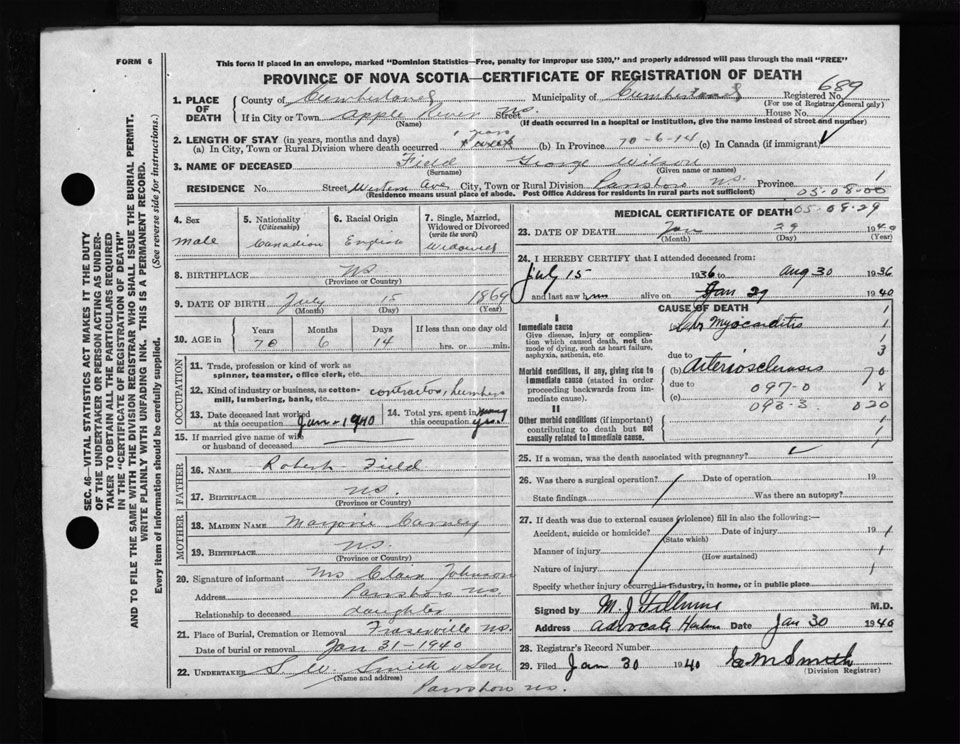 FORM 6
This form if placed in an envelope, marked "Dominion Statistics—Free, penalty for improper use $300," and properly addressed will pass through the mail "FREE"
PROVINCE OF NOVA SCOTIA—CERTIFICATE OF REGISTRATION OF DEATH
689
1. PLACE OF DEATH
County of Cumberland Municipality of Cumberland Registered No.
(For use of Registrar General only)
If in City or Town Apple River NS. Street House No.
(Name) (If death occurred in a hospital or institution, give the name instead of street and number)
2. LENGTH OF STAY (in years, months and days)
(a) In City, Town or Rural Division where death occurred 1 week (b) In Province 70-6-14 (c) In Canada (if immigrant)
3. NAME OF DECEASED Field George Wilson
(Surname) (Given name or names)
RESIDENCE No. Street Western Ave City, Town or Rural Division Parrsboro NS. Province
(Residence means usual place of abode. Post Office Address for residents in rural parts not sufficient) 05-08-00
4. Sex
male
5. Nationality
(Citizenship)
Canadian
6. Racial Origin
English
7. Single, Married, Widowed or Divorced
(write the word)
Widowed
8. BIRTHPLACE NS
(Province or Country)
9. DATE OF BIRTH July 15 1869
(Month) (Day) (Year)
10. AGE in
Years Months Days If less than one day old
70 6 14 hrs. or min.
OCCUPATION
11. Trade, profession or kind of work as spinner, teamster, office clerk, etc.
12. Kind of industry or business, as cotton-mill, lumbering, bank, etc. contractor, lumber
13. Date deceased last worked at this occupation Jan 1940
14. Total yrs. spent in this occupation many yrs.
15. If married give name of wife or husband of deceased
FATHER
16. NAME Robert Field
17. BIRTHPLACE NS.
(Province or Country)
MOTHER
18. MAIDEN NAME Marjorie Carney
19. BIRTHPLACE NS.
(Province or Country)
20. Signature of informant Mrs Clair Johnson
Address Parrsboro NS.
Relationship to deceased daughter
21. Place of Burial, Cremation or Removal Fraserville NS.
Date of burial or removal Jan 31-1940
22. UNDERTAKER S.W. Smith & Son
(Name and address)
Parrsboro NS.
MEDICAL CERTIFICATE OF DEATH 05-08-29
23. DATE OF DEATH Jan 29 1940
(Month) (Day) (Year)
24. I HEREBY CERTIFY that I attended deceased from:
July 15 1936 to Aug 30 1936
and last saw him alive on Jan 29 1940
CAUSE OF DEATH
I
Immediate cause
Give disease, injury or complication which caused death, not the mode of dying, such as heart failure, asphyxia, asthenia, etc.
Myocarditis
due to
Morbid conditions, if any, giving rise to immediate cause (stated in order proceeding backwards from immediate cause).
(b) Arteriosclerosis
due to 097-0
(c) 093-3 020
II
Other morbid conditions (if important) contributing to death but not causally related to Immediate cause.
25. If a woman, was the death associated with pregnancy?
26. Was there a surgical operation? Date of operation 19
State findings Was there an autopsy?
27. If death was due to external causes (violence) fill in also the following:—
Accident, suicide or homicide? Date of injury 19
(State which)
Manner of injury
(How sustained)
Nature of injury
Specify whether injury occurred in industry, in home, or in public place
Signed by M. J. M.D.
Address Advocate Harbour Date Jan 30 1940
28. Registrar's Record Number
29. Filed Jan 30 1940 Smith
(Division Registrar)
SEC. 46—VITAL STATISTICS ACT MAKES IT THE DUTY
OF THE UNDERTAKER OR PERSON ACTING AS UNDER-
TAKER TO OBTAIN ALL THE PARTICULARS REQUIRED
IN THE "CERTIFICATE OF REGISTRATION OF DEATH"
AND TO FILE THE SAME WITH THE DIVISION REGISTRAR WHO SHALL ISSUE THE BURIAL PERMIT.
WRITE PLAINLY WITH UNFADING INK. THIS IS A PERMANENT RECORD.
Every item of information should be carefully supplied. (See reverse side for instructions.)